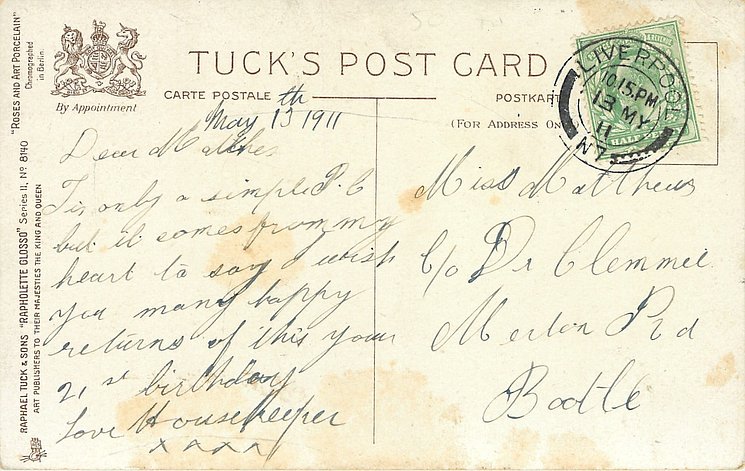 TUCK'S POST CARD
CARTE POSTALE
POSTKART
(FOR ADDRESS ON
By Appointment
"ROSES AND ART PORCELAIN"
Chromographed
in Berlin
RAPHAEL TUCK & SONS "RAPHOLETTE GLOSSO" Series II. No 8140
ART PUBLISHERS TO THEIR MAJESTIES THE KING AND QUEEN
LIVERPOOL
10.15 PM
13 MY
11
HALF
May 13th 1911
Dear
Tis only a simple P.C
but it comes from my
heart to say I wish
you many happy
returns of this your
21st birthday
love Housekeeper
xxxx
Miss Matthews
C/o Dr Clemmee
Merton Rd
Bootle